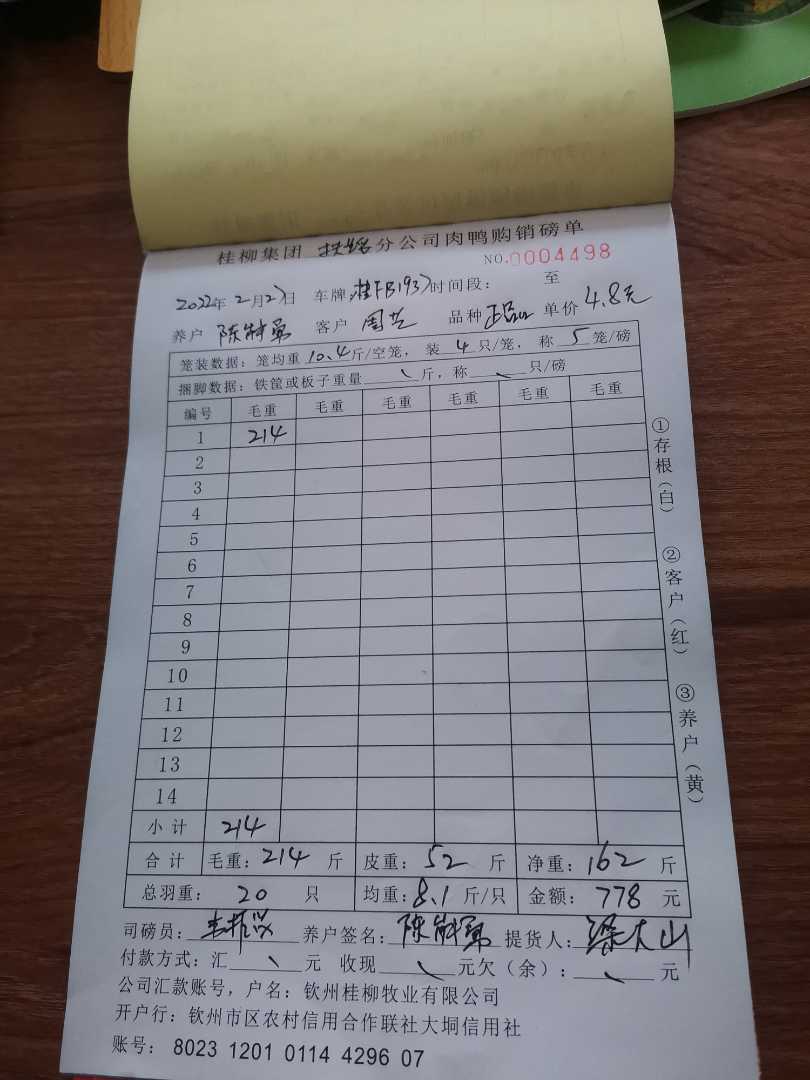 桂柳集团 分公司肉鸭购销磅单
NO.0004498
2022年2月27日 车牌:桂FB1937时间段: 至
养户 陈 客户 周芝 品种 正品 单价 4.8元
笼装数据:笼均重 10.4斤/空笼,装 4 只/笼,称 5 笼/磅
捆脚数据:铁筐或板子重量 \ 斤,称 \ 只/磅
编号 毛重 毛重 毛重 毛重 毛重 毛重
1 214
2
3
4
5
6
7
8
9
10
11
12
13
14
小计 214
合计 毛重:214 斤 皮重:52 斤 净重:162 斤
总羽重: 20 只 均重:8.1 斤/只 金额:778 元
司磅员: 养户签名:陈 提货人:梁大山
付款方式:汇 \ 元 收现 \ 元欠(余): \ 元
公司汇款账号,户名:钦州桂柳牧业有限公司
开户行:钦州市区农村信用合作联社大垌信用社
账号: 8023 1201 0114 4296 07
①存根(白) ②客户(红) ③养户(黄)